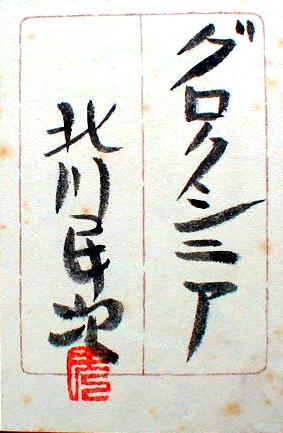 グロクシニア
北川民次